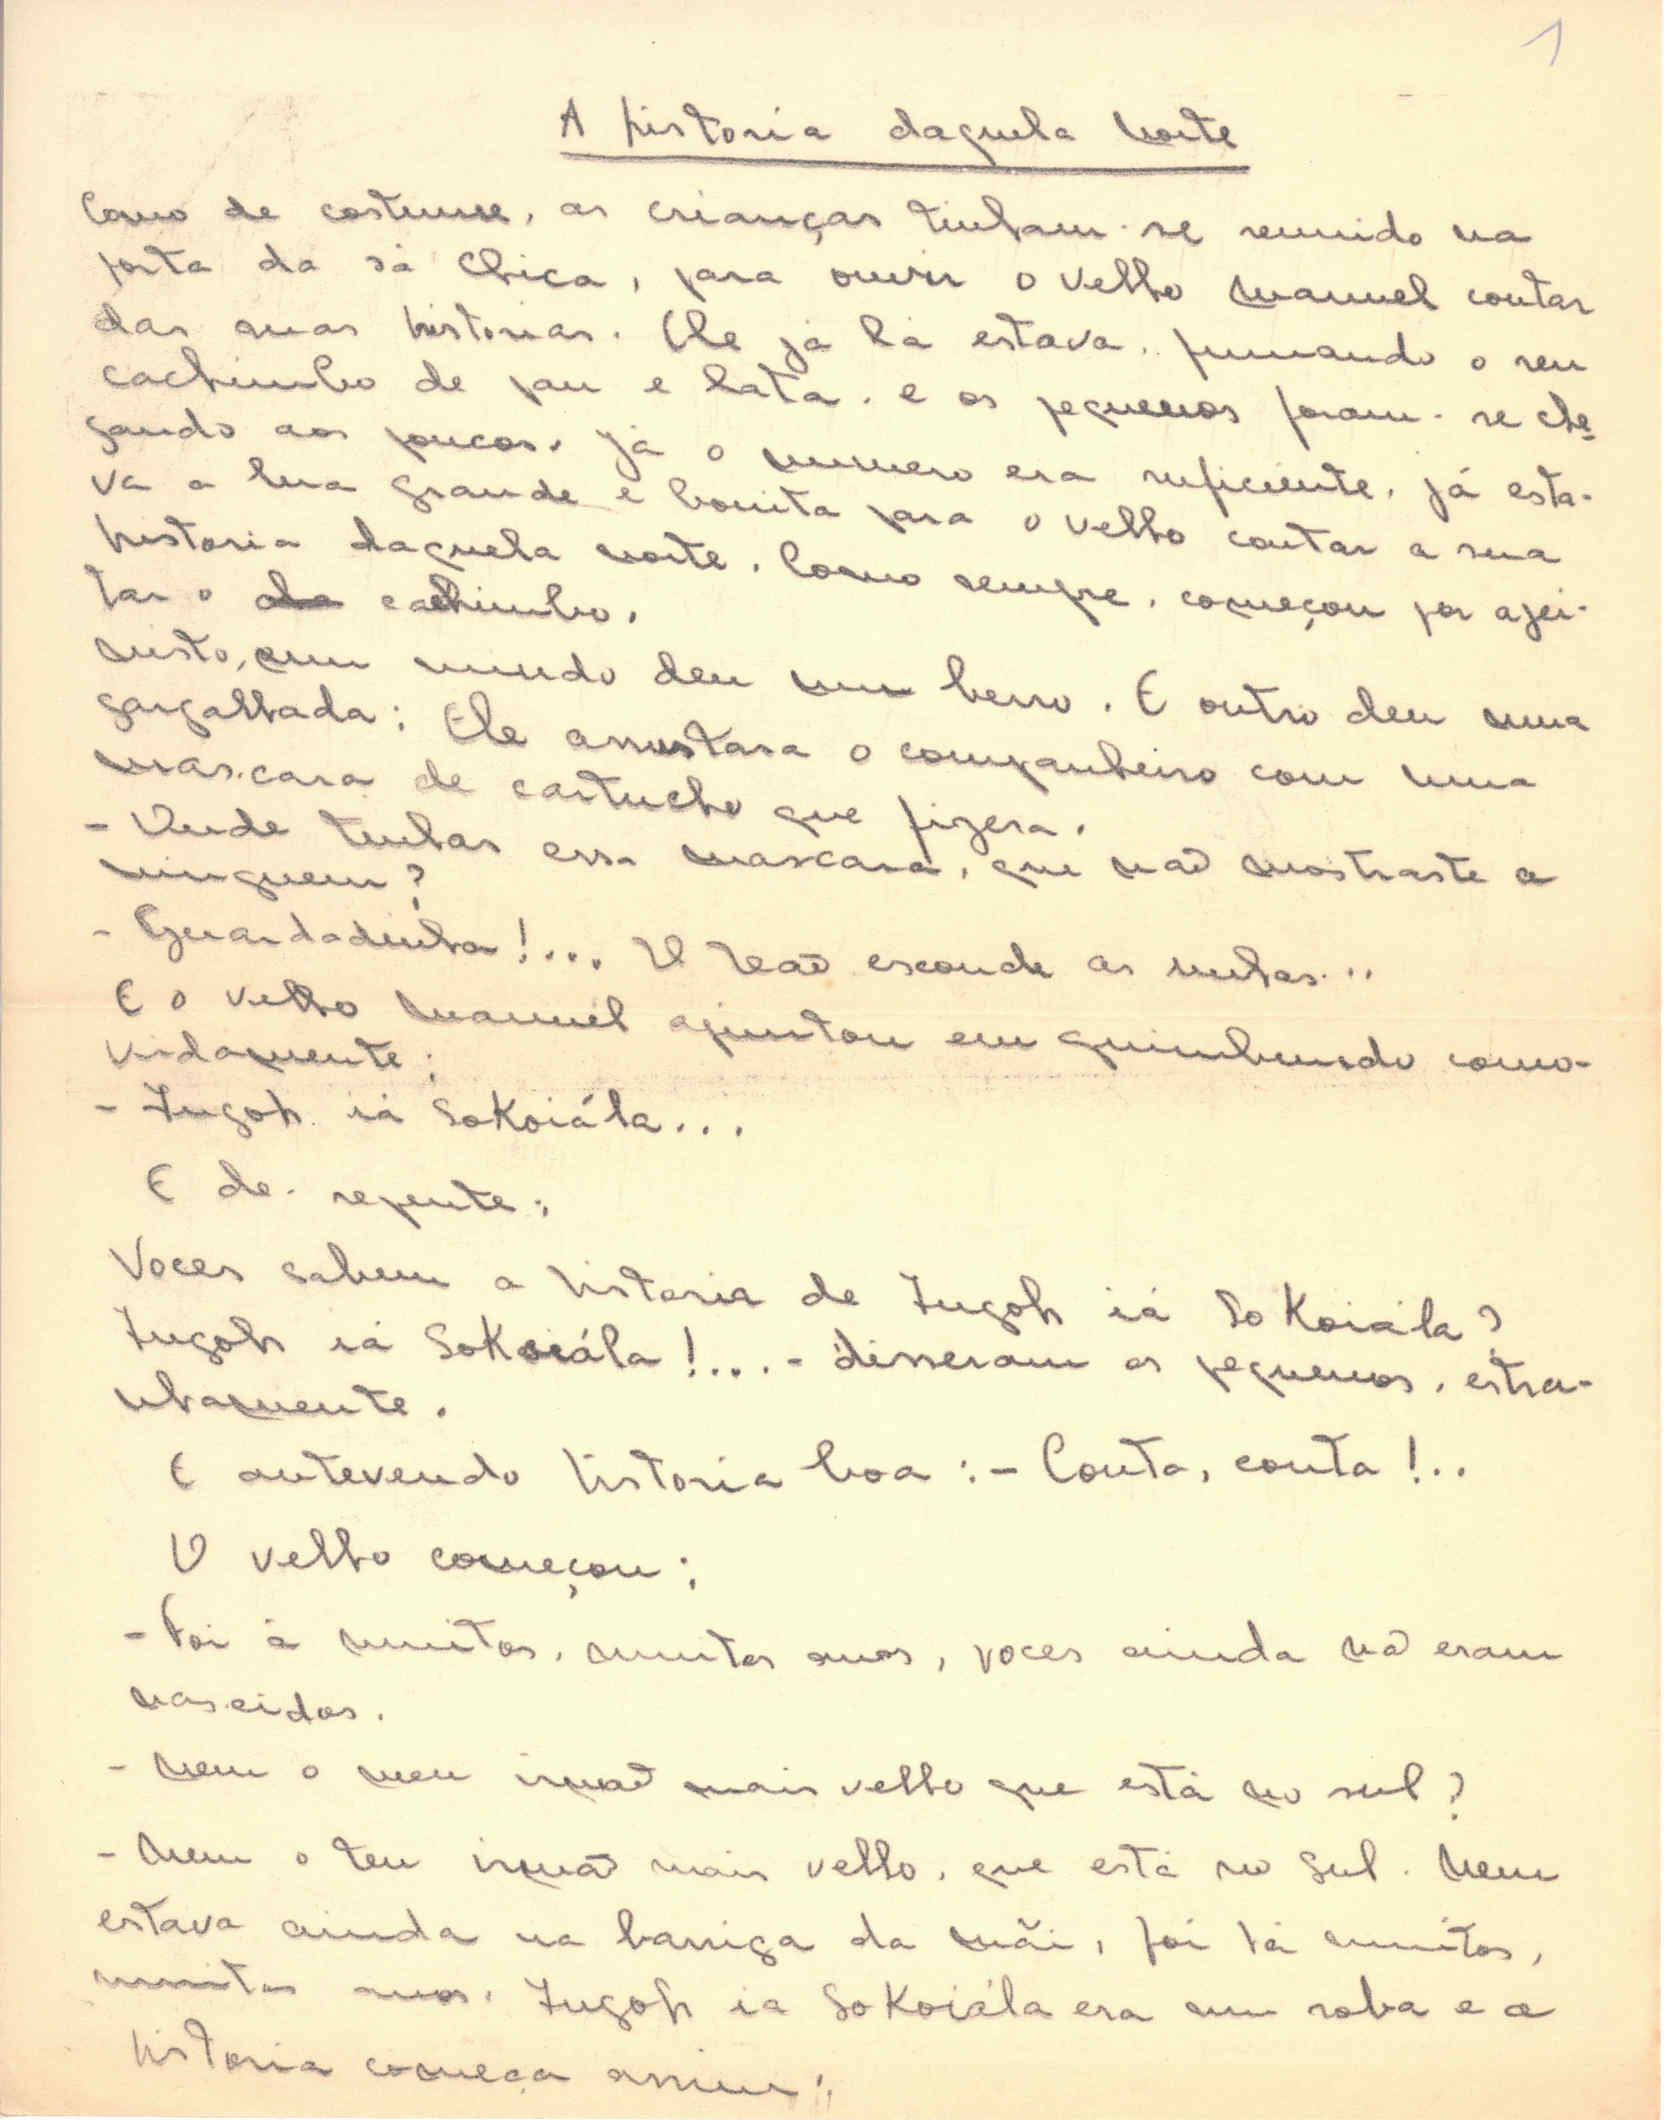 1
A historia daquela noite
Como de costume, as crianças tinham-se reunido na
porta da sá Chica, para ouvir o velho Manuel contar
das suas historias. Ele já lá estava, fumando o seu
cachimbo de pau e lata. e os pequenos foram-se che-
gando aos poucos. Já o numero era suficiente, já esta-
va a lua grande e bonita para o velho contar a sua
historia daquela noite. Como sempre, começou por ajei-
tar o cachimbo.
Nisto, um miudo deu um berro. E outro deu uma
gargalhada: Ele assustara o companheiro com uma
mascara de cartucho que fizera.
- Onde tinhas essa mascara, que não mostraste a
ninguem?
- Guardadinha!... O leão esconde as unhas...
E o velho Manuel ajuntou em quimbundo como-
vidamente:
- Jugoh iá Sokoiála...
E de-repente:
Voces sabem a historia de Jugoh iá Sokoiála?
Jugoh iá Sokoiála!... - disseram os pequenos, estra-
nhamente.
E antevendo historia boa: - Conta, conta!..
O velho começou:
- Foi á muitos, muitos anos, voces ainda não eram
nascidos.
- Nem o meu irmão mais velho que está no sul?
- Nem o teu irmão mais velho, que está no Sul. Nem
estava ainda na barriga da mãi, foi há muitos,
muitos anos. Jugoh ia Sokoiála era um soba e a
historia começa assim: